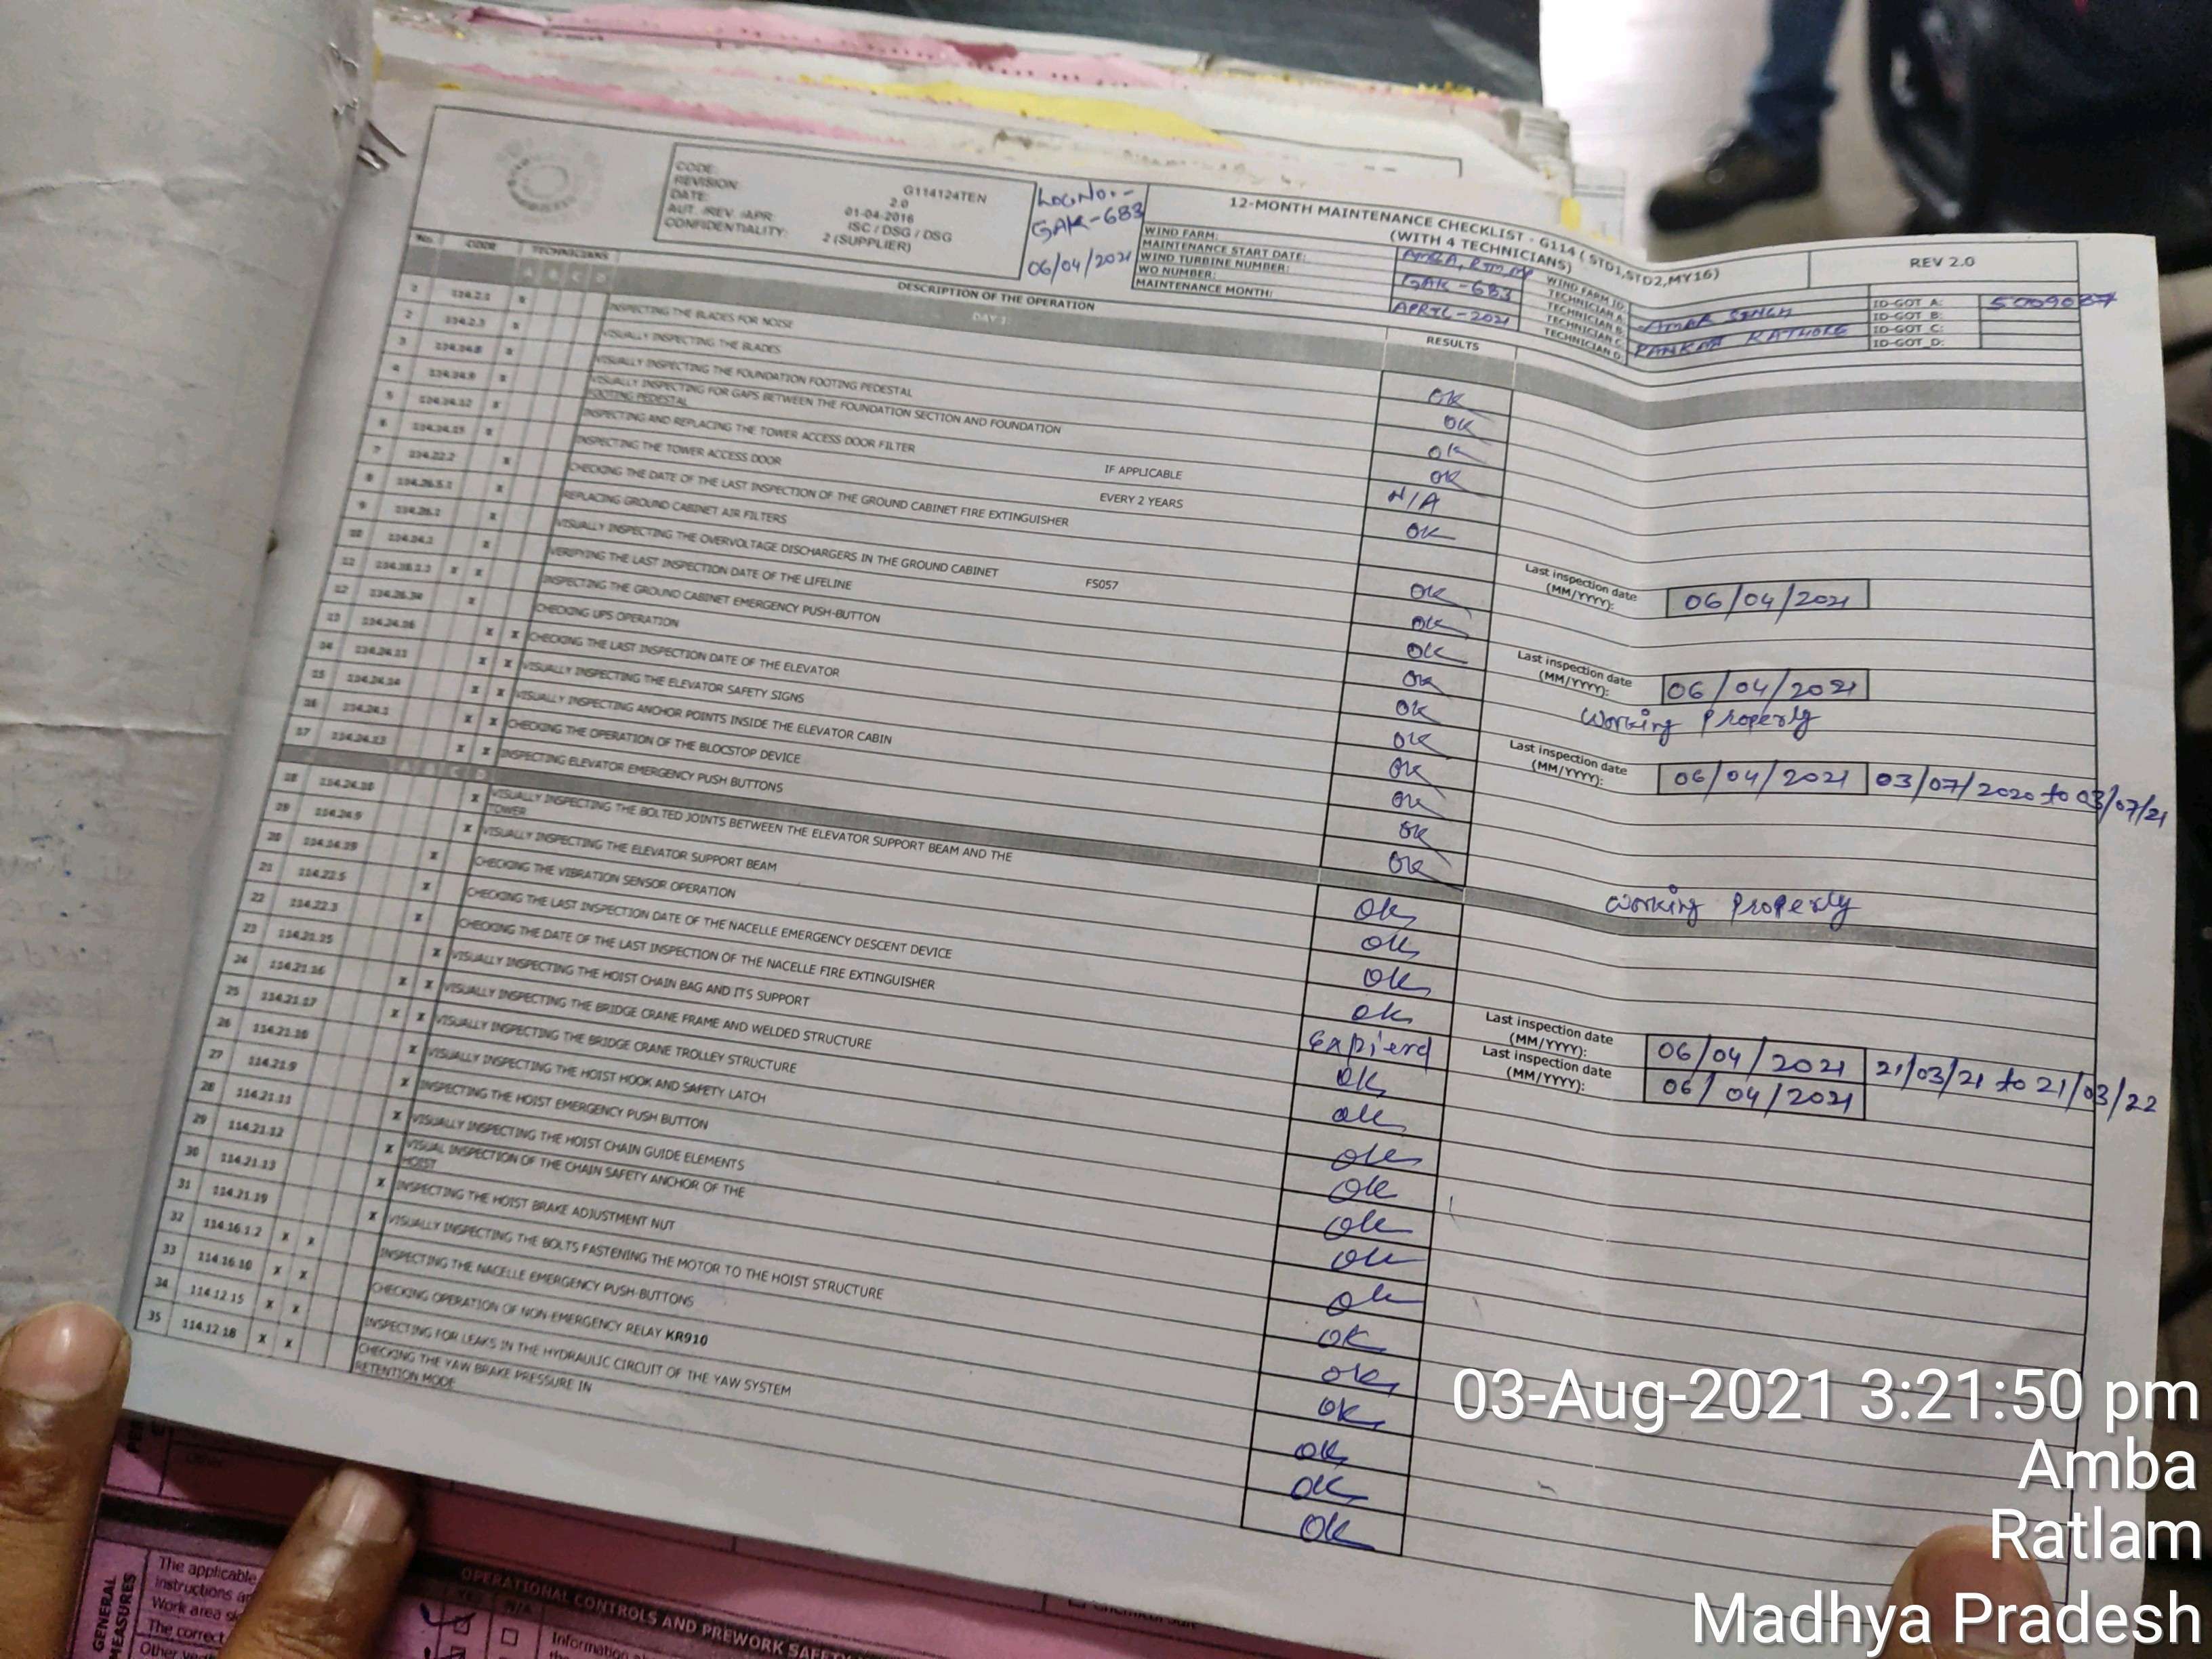 CODE: G114124TEN
REVISION: 2.0
DATE: 01-04-2016
AUT. /REV. /APR: ISC / DSG / DSG
CONFIDENTIALITY: 2 (SUPPLIER)
LOG No:-
GAK-683
06/04/2021
12-MONTH MAINTENANCE CHECKLIST - G114 ( STD1,STD2,MY16)
(WITH 4 TECHNICIANS)
REV 2.0
WIND FARM:
MAINTENANCE START DATE:
WIND TURBINE NUMBER: GAK-683
WO NUMBER:
MAINTENANCE MONTH: APRIL-2021
WIND FARM ID:
TECHNICIAN A: AMAR SINGH
TECHNICIAN B: PANKAJ RATHORE
TECHNICIAN C:
TECHNICIAN D:
ID-GOT_A:
ID-GOT_B:
ID-GOT_C:
ID-GOT_D:
No. CODE TECHNICIANS DESCRIPTION OF THE OPERATION RESULTS
A B C D DAY 1:
1 114.2.1 x INSPECTING THE BLADES FOR NOISE OK
2 114.2.3 x VISUALLY INSPECTING THE BLADES OK
3 114.14.8 x VISUALLY INSPECTING THE FOUNDATION FOOTING PEDESTAL OK
4 114.14.9 x VISUALLY INSPECTING FOR GAPS BETWEEN THE FOUNDATION SECTION AND FOUNDATION FOOTING PEDESTAL OK
5 114.14.12 x INSPECTING AND REPLACING THE TOWER ACCESS DOOR FILTER IF APPLICABLE N/A
6 114.14.15 x INSPECTING THE TOWER ACCESS DOOR EVERY 2 YEARS OK
7 114.22.2 x CHECKING THE DATE OF THE LAST INSPECTION OF THE GROUND CABINET FIRE EXTINGUISHER OK Last inspection date (MM/YYYY): 06/04/2021
8 114.26.5.1 x REPLACING GROUND CABINET AIR FILTERS OK
9 114.26.1 x VISUALLY INSPECTING THE OVERVOLTAGE DISCHARGERS IN THE GROUND CABINET FS057 OK
10 114.14.1 x VERIFYING THE LAST INSPECTION DATE OF THE LIFELINE OK Last inspection date (MM/YYYY): 06/04/2021
11 114.16.1.1 x x INSPECTING THE GROUND CABINET EMERGENCY PUSH-BUTTON OK Working Properly
12 114.26.34 x CHECKING UPS OPERATION OK
13 114.24.16 x x CHECKING THE LAST INSPECTION DATE OF THE ELEVATOR OK Last inspection date (MM/YYYY): 06/04/2021 03/07/2020 to 03/07/21
14 114.24.11 x x VISUALLY INSPECTING THE ELEVATOR SAFETY SIGNS OK
15 114.24.14 x x VISUALLY INSPECTING ANCHOR POINTS INSIDE THE ELEVATOR CABIN OK
16 114.24.1 x x CHECKING THE OPERATION OF THE BLOCSTOP DEVICE OK
17 114.24.13 x x INSPECTING ELEVATOR EMERGENCY PUSH BUTTONS Working Properly
A B C D
18 114.24.10 x VISUALLY INSPECTING THE BOLTED JOINTS BETWEEN THE ELEVATOR SUPPORT BEAM AND THE TOWER OK
19 114.24.9 x VISUALLY INSPECTING THE ELEVATOR SUPPORT BEAM OK
20 114.14.19 x CHECKING THE VIBRATION SENSOR OPERATION OK
21 114.22.5 x CHECKING THE LAST INSPECTION DATE OF THE NACELLE EMERGENCY DESCENT DEVICE OK Last inspection date (MM/YYYY): 06/04/2021 21/03/21 to 21/03/22
22 114.22.3 x CHECKING THE DATE OF THE LAST INSPECTION OF THE NACELLE FIRE EXTINGUISHER Expierd Last inspection date (MM/YYYY): 06/04/2021
23 114.21.15 x VISUALLY INSPECTING THE HOIST CHAIN BAG AND ITS SUPPORT OK
24 114.21.16 x x VISUALLY INSPECTING THE BRIDGE CRANE FRAME AND WELDED STRUCTURE OK
25 114.21.17 x x VISUALLY INSPECTING THE BRIDGE CRANE TROLLEY STRUCTURE OK
26 114.21.10 x VISUALLY INSPECTING THE HOIST HOOK AND SAFETY LATCH OK
27 114.21.9 x INSPECTING THE HOIST EMERGENCY PUSH BUTTON OK
28 114.21.11 x VISUALLY INSPECTING THE HOIST CHAIN GUIDE ELEMENTS OK
29 114.21.12 x VISUAL INSPECTION OF THE CHAIN SAFETY ANCHOR OF THE HOIST OK
30 114.21.13 x INSPECTING THE HOIST BRAKE ADJUSTMENT NUT OK
31 114.21.19 x VISUALLY INSPECTING THE BOLTS FASTENING THE MOTOR TO THE HOIST STRUCTURE OK
32 114.16.1.2 x x INSPECTING THE NACELLE EMERGENCY PUSH-BUTTONS OK
33 114.16.10 x x CHECKING OPERATION OF NON-EMERGENCY RELAY KR910 OK
34 114.12.15 x x INSPECTING FOR LEAKS IN THE HYDRAULIC CIRCUIT OF THE YAW SYSTEM OK
35 114.12.18 x x CHECKING THE YAW BRAKE PRESSURE IN RETENTION MODE OK
03-Aug-2021 3:21:50 pm
Amba
Ratlam
Madhya Pradesh
OPERATIONAL CONTROLS AND PREWORK
GENERAL MEASURES
The applicable
Instructions
Work area
The correct
N/A